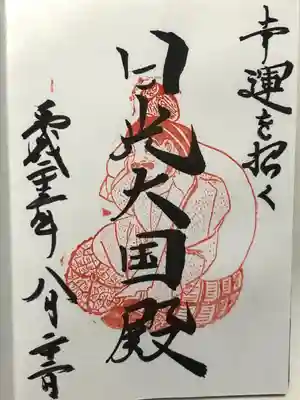 幸運を招く
日光大国殿
平成二十 年 八月 日